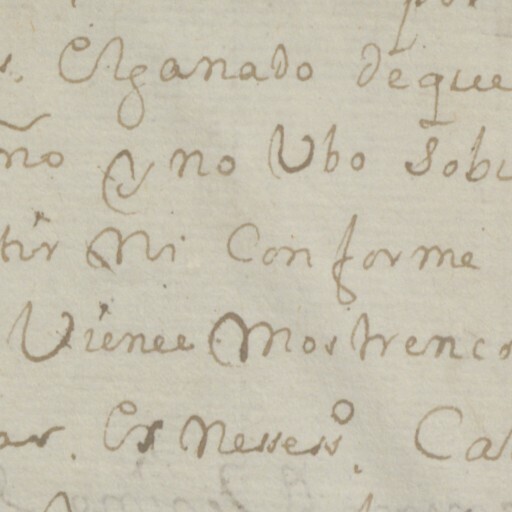 Elganado deque
ño y no Ubo Sobr
tir Ni Conforme
Vienee Mostrenco
ar. Es Nessessº. Cal